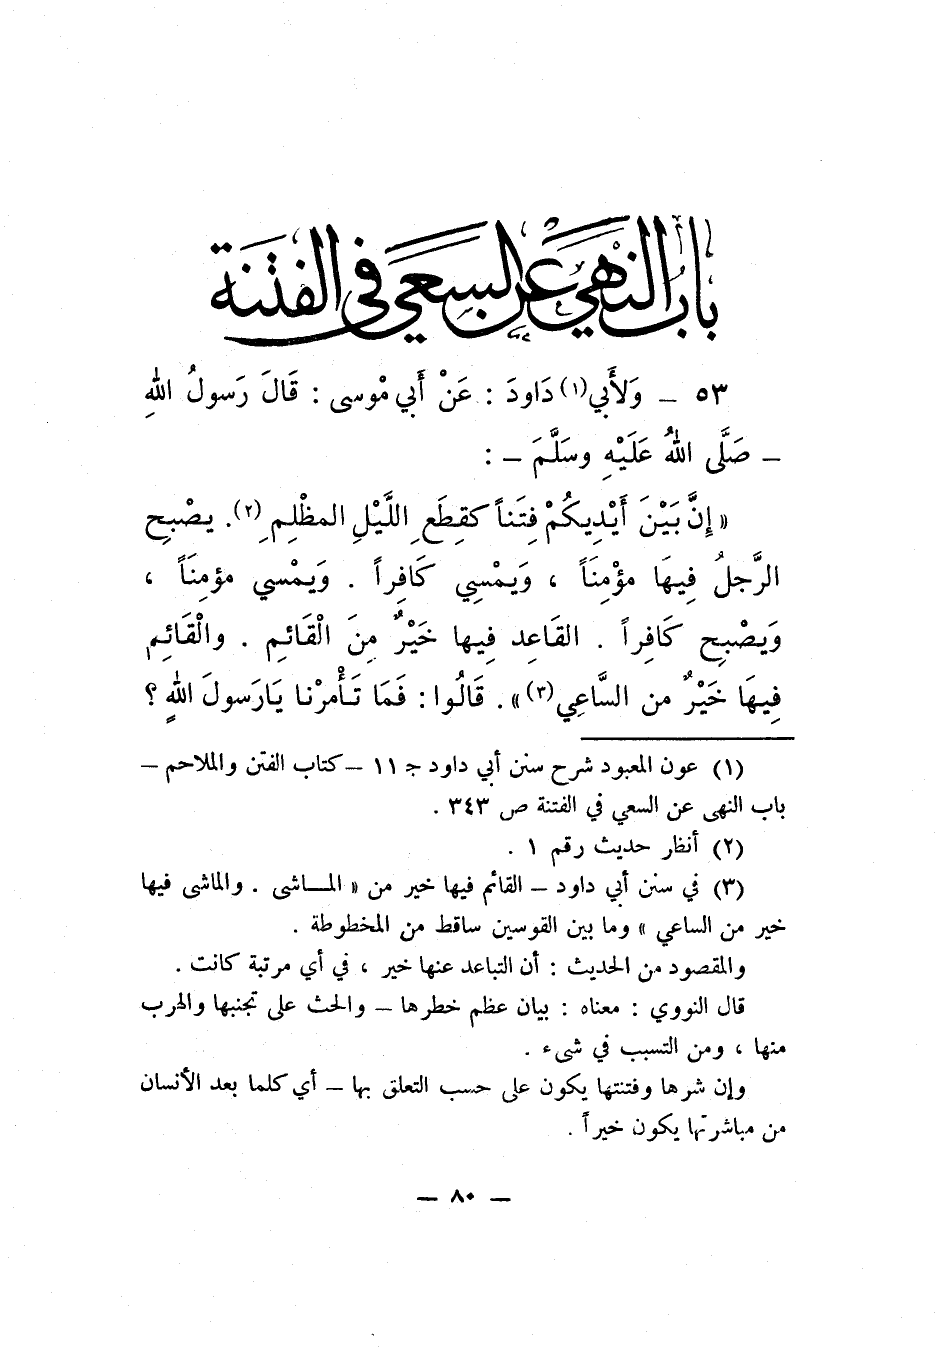 باب النهي عن السعي في الفتنة
٥٣ – وَلأَبي(١) دَاودَ : عَنْ أَبي مْوسى : قَالَ رَسولُ اللهِ
– صَلَّى اللهُ عَلَيْهِ وسَلَّمَ – :
« إِنَّ بَيْنَ أَيْدِيكُمْ فِتَناً كقِطَعِ اللَّيْلِ المظْلِمِ (٢). يصْبحِ
الرَّجلُ فِيهَا مؤْمنَاً ، وَيمْسِي كَافِراً . وَيمْسي مؤمنَاً ،
وَيصْبح كَافِراً . القَاعِد فِيها خَيْرٌ مِنَ الْقَائمِ . والْقَائِم
فِيهَا خَيْرٌ من السَّاعِي(٣)». قَالُوا : فَمَا تَأْمرْنا يَارَسولَ اللهِ ؟
(١) عون المعبود شرح سنن أبي داود جـ ١١ – كتاب الفتن والملاحم –
باب النهى عن السعي في الفتنة ص ٣٤٣ .
(٢) أنظار حديث رقم ١ .
(٣) في سنن أبي داود – القائم فيها خير من « المـاشى . والماشى فيها
خير من الساعي » وما بين القوسين ساقط من المخطوطة .
والمقصود من الحديث : أن التباعد عنها خير ، في أي مرتبة كانت .
قال النووي : معناه : بيان عظم خطرها – والحث على تجنبها والهرب
منها ، ومن التسبب في شىء .
وإن شرها وفتنتها يكون على حسب التعلق بها – أي كلما بعد الأنسان
من مباشرتها يكون خيراً .
– ٨٠ –